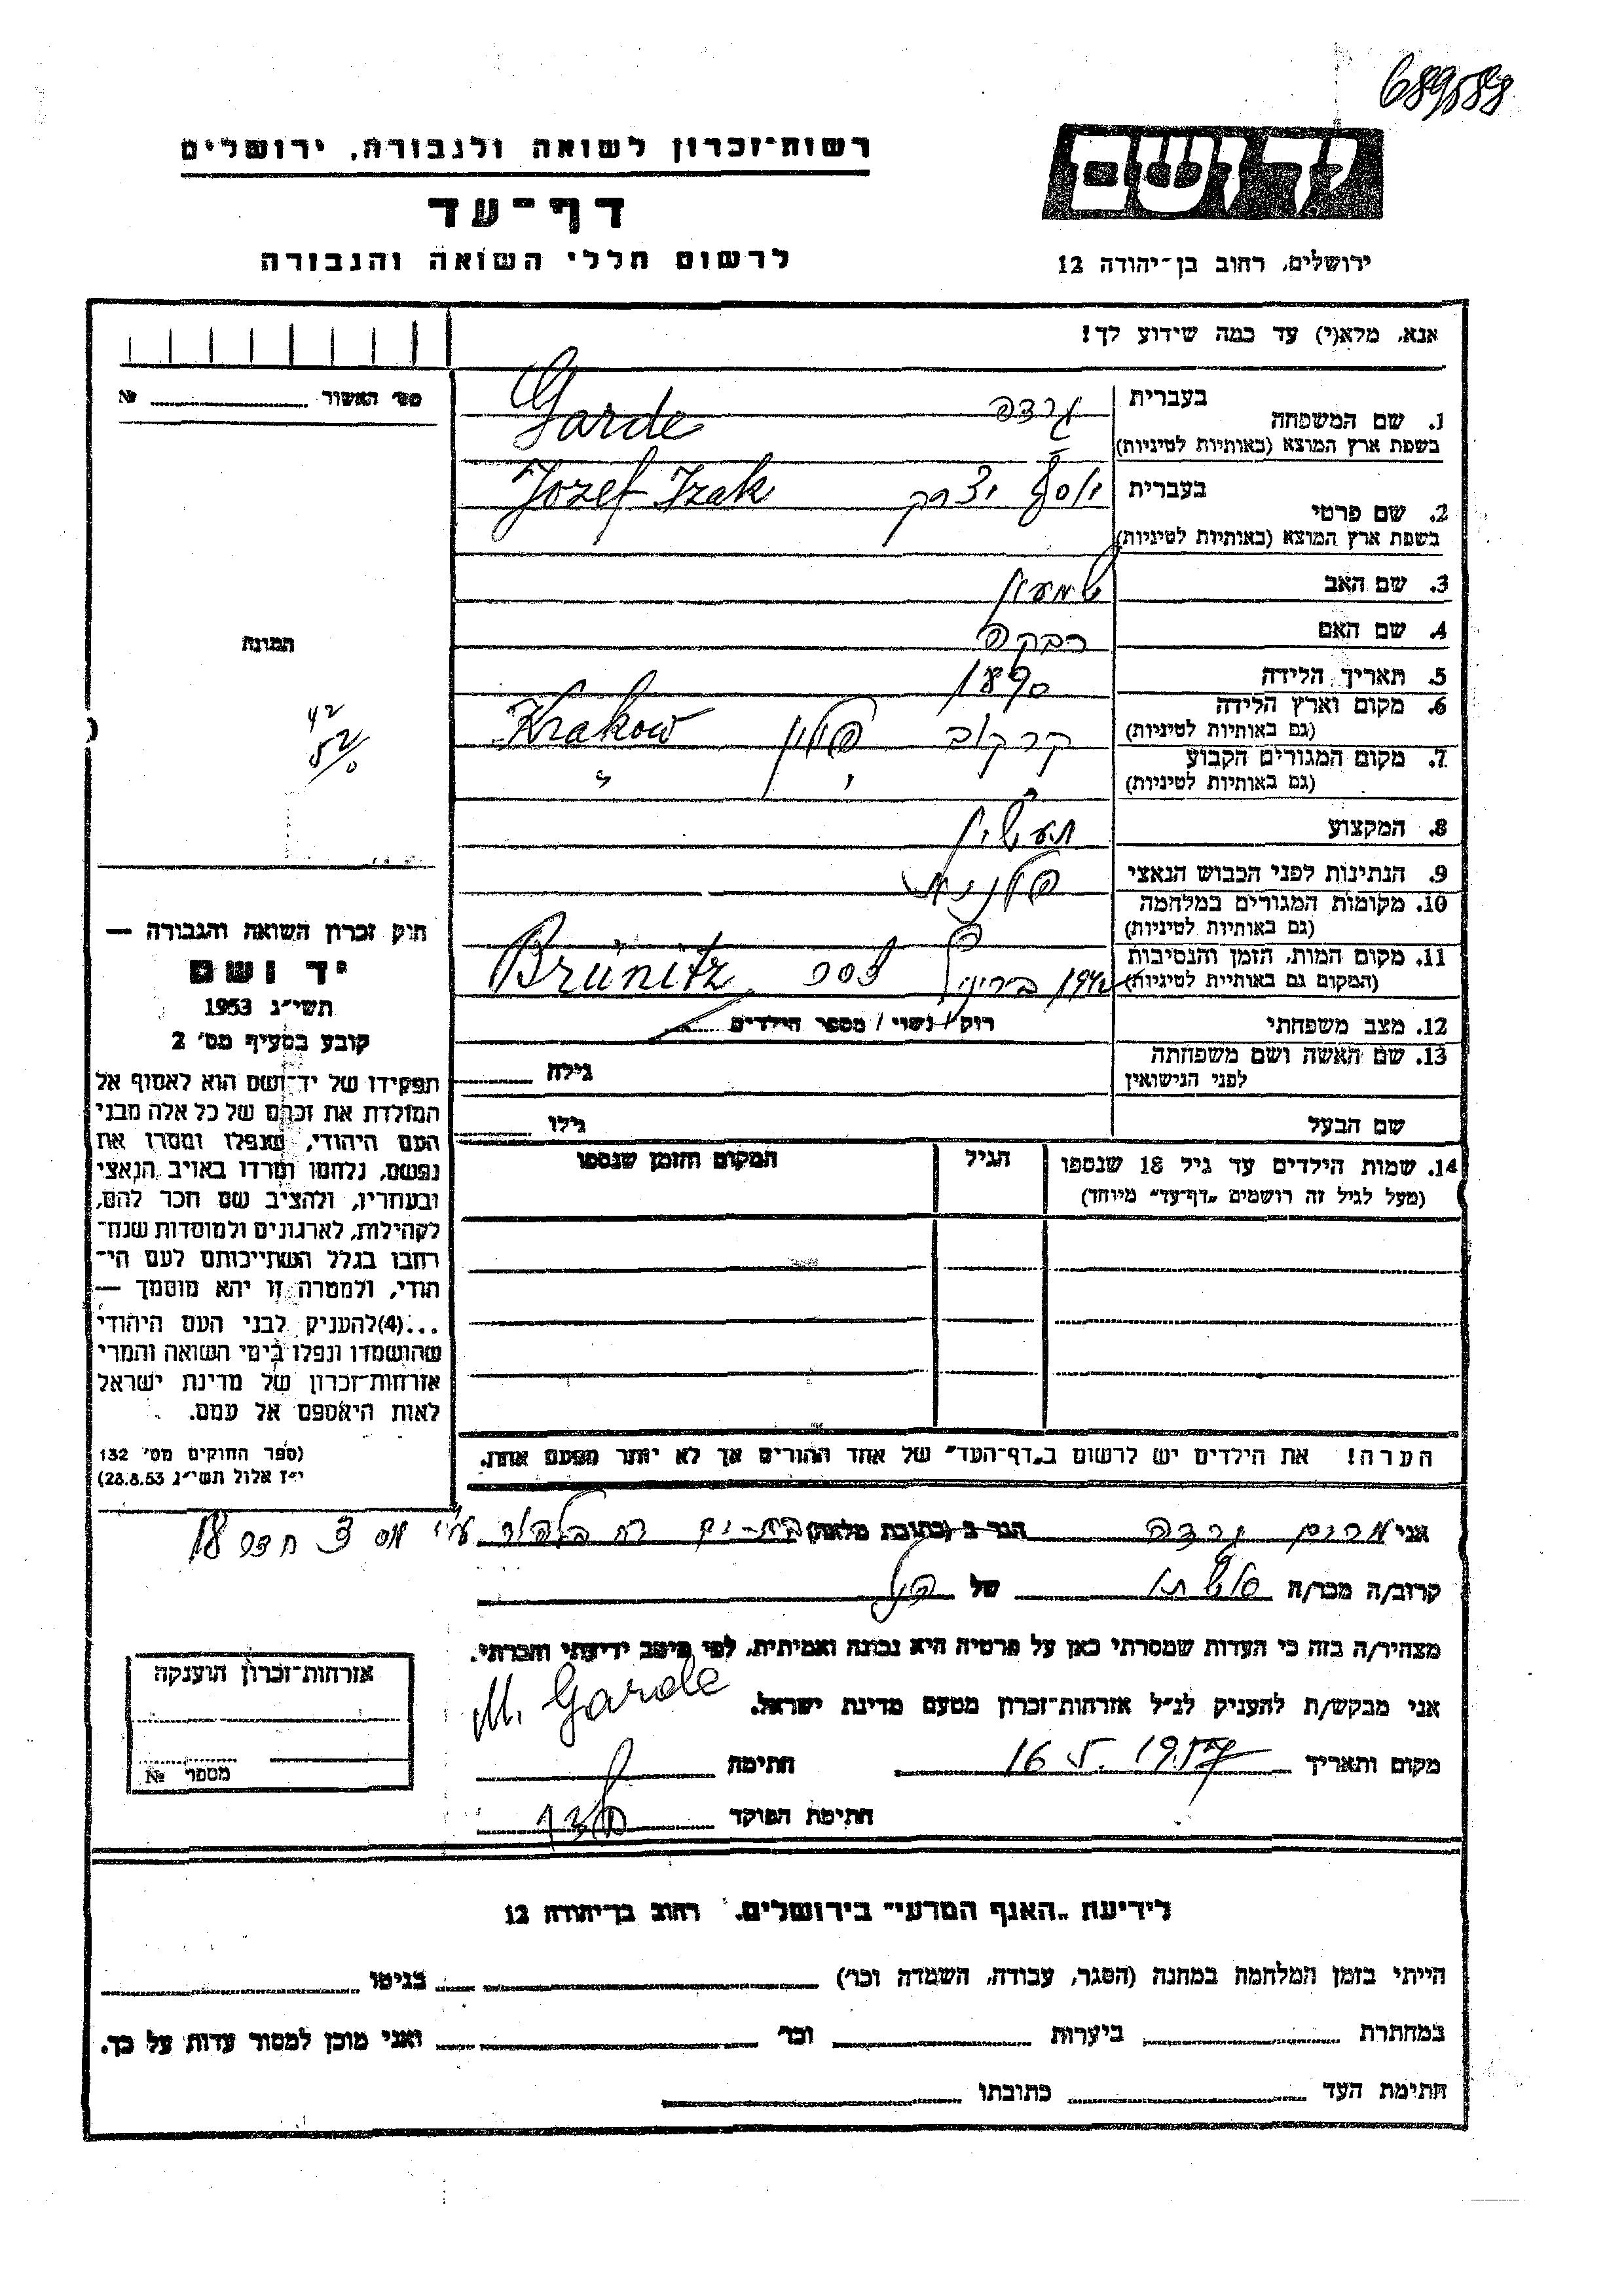 689588
רשות־זכרון לשואה ולגבורה, ירושלים
דף־עד
לרשום חללי השואה והגבורה
יד ושם
ירושלים, רחוב בן־יהודה 12
אנא, מלא(י) עד כמה שידוע לך!
מס׳ האשור № 
1. שם המשפחה בעברית גרדה Garde
בשפת ארץ המוצא (באותיות לטיניות)
2. שם פרטי בעברית יוסף יצחק Jozef Izak
בשפת ארץ המוצא (באותיות לטיניות)
3. שם האב שמעון
4. שם האם רבקה
5. תאריך הלידה 1890
6. מקום וארץ הלידה קרקוב פולין Krakow
(גם באותיות לטיניות)
7. מקום המגורים הקבוע " " "
(גם באותיות לטיניות)
8. המקצוע
9. הנתינות לפני הכבוש הנאצי פולנית
10. מקומות המגורים במלחמה
(גם באותיות לטיניות)
11. מקום המות, הזמן והנסיבות 1942 Brünitz
(המקום גם באותיות לטיניות)
12. מצב משפחתי רוק / נשוי / מספר הילדים
13. שם האשה ושם משפחתה גילה
לפני הנישואין
שם הבעל גילו
14. שמות הילדים עד גיל 18 שנספו הגיל המקום והזמן שנספו
(מעל לגיל זה רושמים „דף־עד" מיוחד)
הערה! את הילדים יש לרשום ב„דף־העד" של אחד ההורים אך לא יותר מפעם אחת.
התמונה
42
52/0
חוק זכרון השואה והגבורה —
יד ושם
תשי״ג 1953
קובע בסעיף מס׳ 2
תפקידו של יד־ושם הוא לאסוף אל
המולדת את זכרם של כל אלה מבני
העם היהודי, שנפלו ומסרו את
נפשם, נלחמו ומרדו באויב הנאצי
ובעוזריו, ולהציב שם וזכר להם,
לקהילות, לארגונים ולמוסדות שנח־
רבו בגלל השתייכותם לעם הי־
הודי, ולמטרה זו יהא מוסמך —
...(4)להעניק לבני העם היהודי
שהושמדו ונפלו בימי השואה והמרי
אזרחות־זכרון של מדינת ישראל
לאות היאספם אל עמם.
(ספר החוקים מס׳ 132
י״ז אלול תשי״ג 28.8.53)
אני מרים גרדה הגר ב (כתובת מלאה) בת-ים
קרוב/ה מכר/ה של
מצהיר/ה בזה כי העדות שמסרתי כאן על פרטיה היא נכונה ואמיתית, לפי מיטב ידיעתי והכרתי.
אני מבקש/ת להעניק לנ״ל אזרחות־זכרון מטעם מדינת ישראל.
M. Garde
מקום ותאריך 16.5.1957 חתימה
חתימת הפוקד
אזרחות־זכרון הוענקה
מספר №
לידיעת „האגף המדעי" בירושלים, רחוב בן־יהודה 12
הייתי בזמן המלחמה במחנה (הסגר, עבודה, השמדה וכו׳) בגיטו
במחתרת ביערות וכו׳ ואני מוכן למסור עדות על כך.
חתימת העד כתובתו